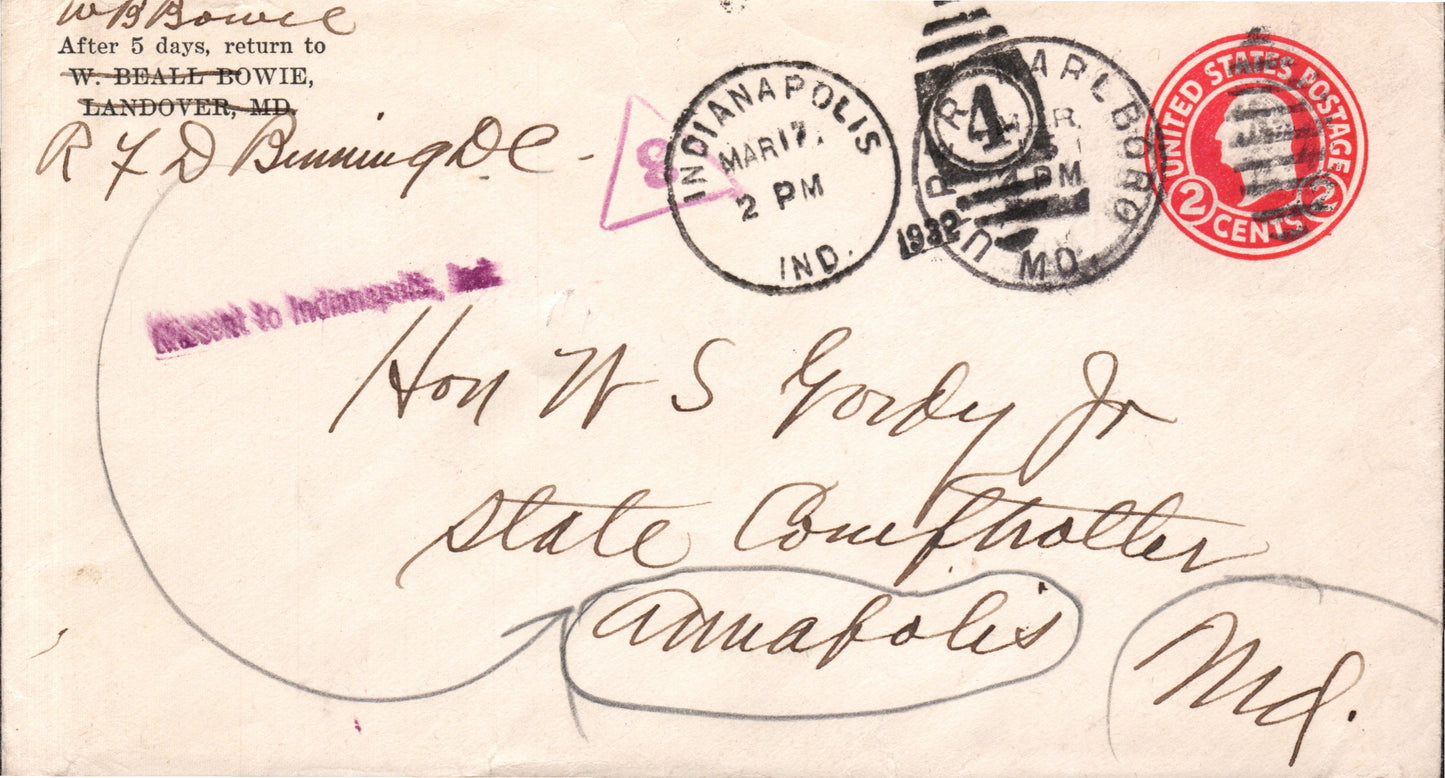 W B Bowie
After 5 days, return to
W. BEALL BOWIE,
LANDOVER, MD.
R F D Benning D.C.
8
INDIANAPOLIS
MAR 17.
2 PM
IND.
4
UPPER MARLBORO
MAR.
PM
MD.
1932
UNITED STATES POSTAGE
2 CENTS 2
Missent to Indianapolis, Ind.
Hon W S Gordy Jr
State Comptroller
Annapolis
Md.